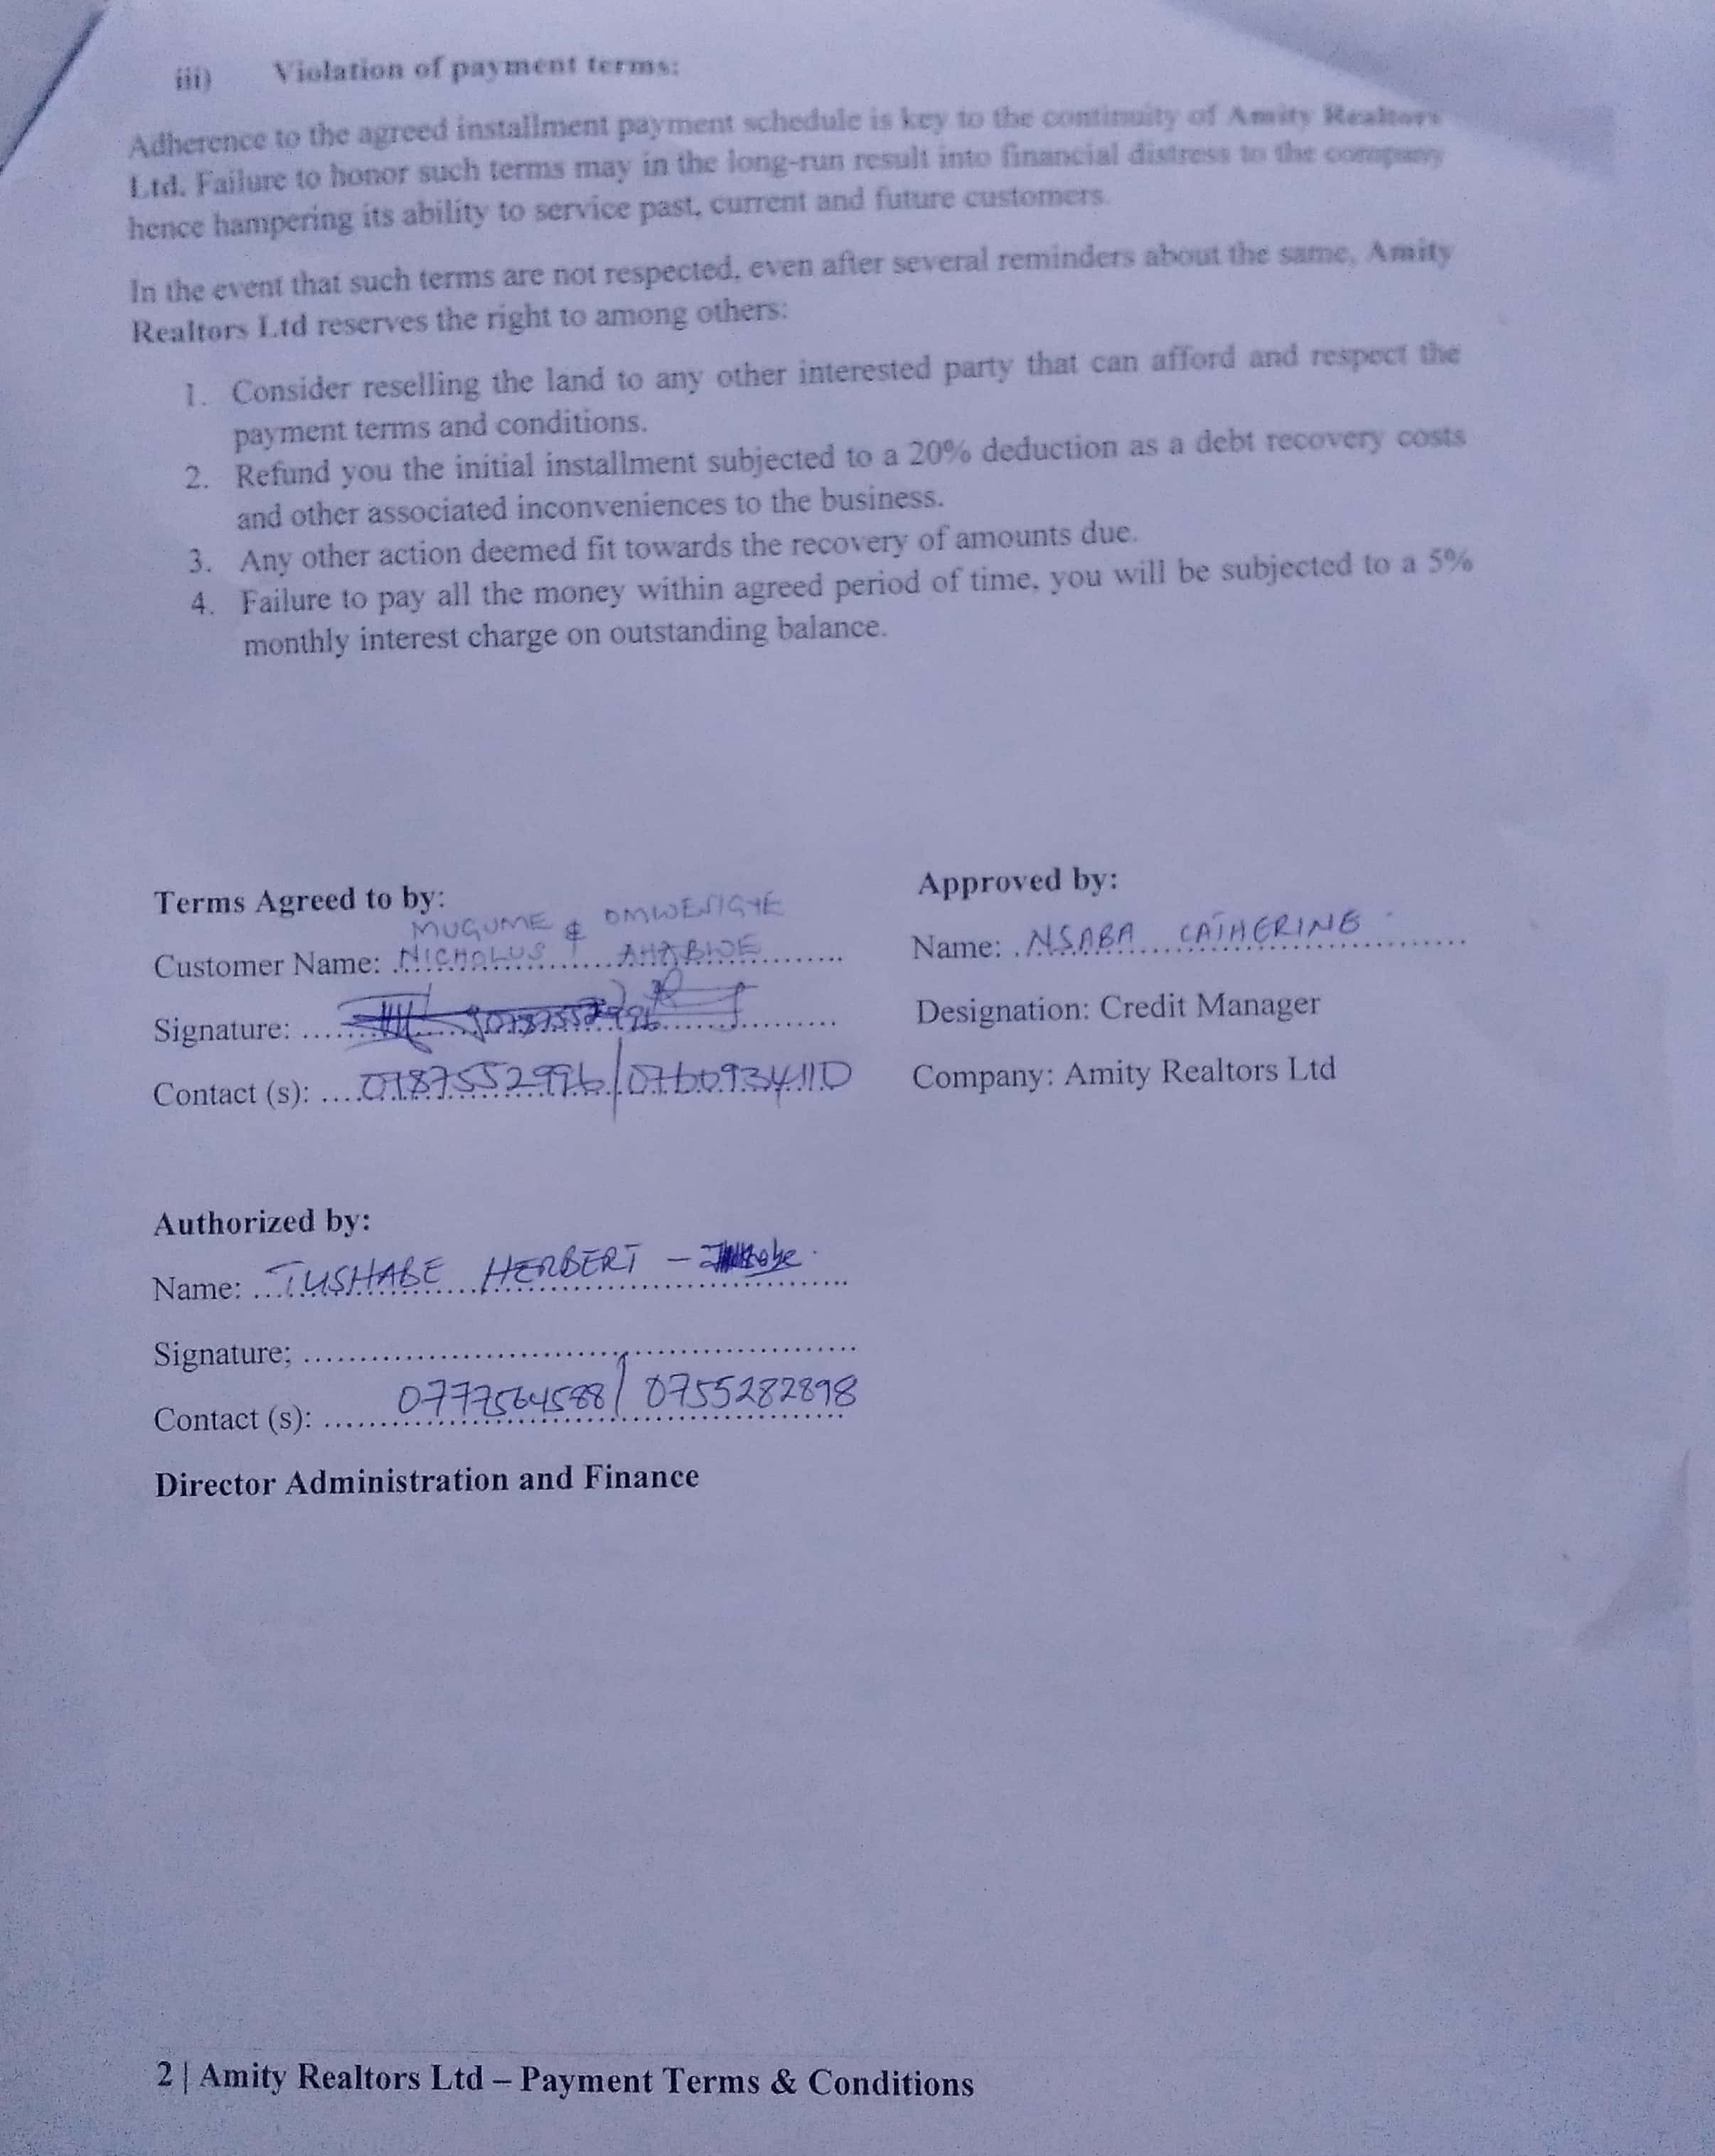 iii) Violation of payment terms:
Adherence to the agreed installment payment schedule is key to the continuity of Amity Realtors
Ltd. Failure to honor such terms may in the long-run result into financial distress to the company
hence hampering its ability to service past, current and future customers.
In the event that such terms are not respected, even after several reminders about the same, Amity
Realtors Ltd reserves the right to among others:
1. Consider reselling the land to any other interested party that can afford and respect the
payment terms and conditions.
2. Refund you the initial installment subjected to a 20% deduction as a debt recovery costs
and other associated inconveniences to the business.
3. Any other action deemed fit towards the recovery of amounts due.
4. Failure to pay all the money within agreed period of time, you will be subjected to a 5%
monthly interest charge on outstanding balance.
Terms Agreed to by:
MUGUME & OMWESIGYE
Customer Name: NICHOLUS
Signature:
Contact (s): 0787552996/0760934110
Approved by:
Name: NSABA CATHERINE
Designation: Credit Manager
Company: Amity Realtors Ltd
Authorized by:
Name: TUSHABE HERBERT -
Signature;
Contact (s): 0777564588/ 0755282898
Director Administration and Finance
2 | Amity Realtors Ltd – Payment Terms & Conditions